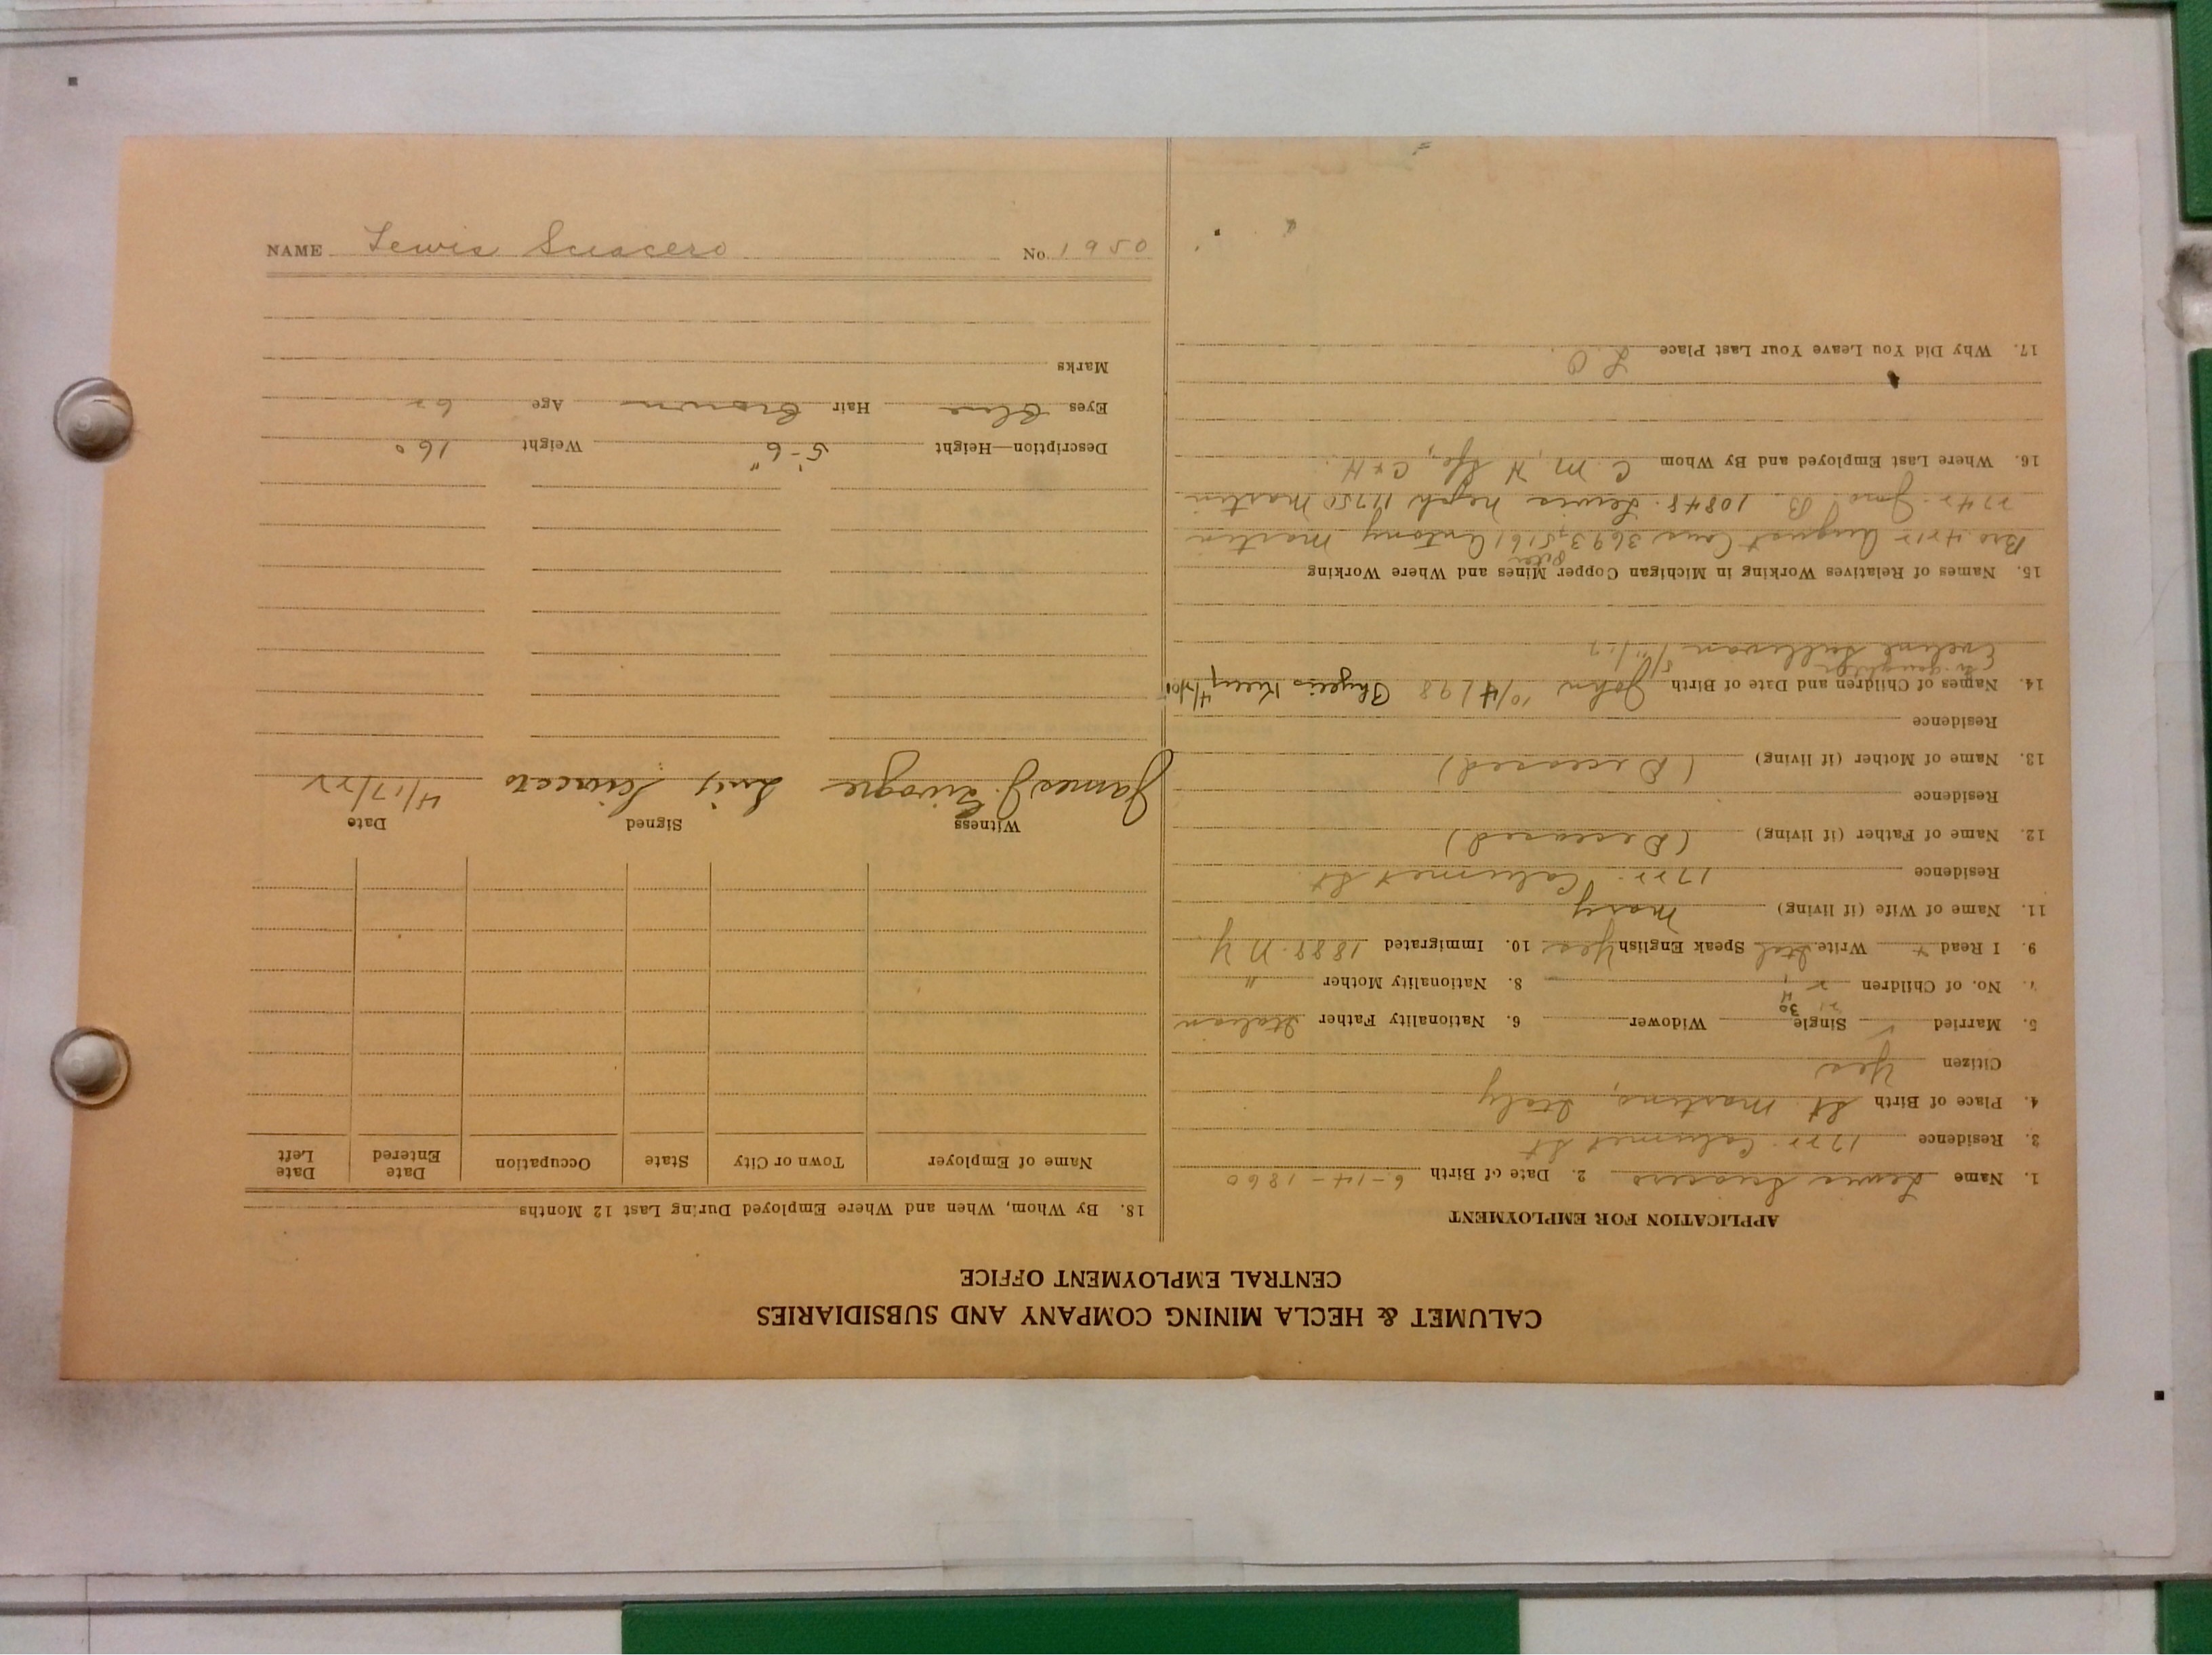 CALUMET & HECLA MINING COMPANY AND SUBSIDIARIES
CENTRAL EMPLOYMENT OFFICE
APPLICATION FOR EMPLOYMENT
1. Name Lewis Sciacero 2. Date of Birth 6-14-1860
3. Residence 1722 Calumet St
4. Place of Birth St. Martino, Italy
Citizen Yes
5. Married Single Widower 6. Nationality Father Italian
7. No. of Children 2 8. Nationality Mother "
9. I Read + Write Ital Speak English Yes 10. Immigrated 1888. N.Y
11. Name of Wife (if living) Mary
Residence 1722. Calumet St.
12. Name of Father (if living) (Deceased)
Residence
13. Name of Mother (if living) (Deceased)
Residence
14. Names of Children and Date of Birth John 10/4/98
Eveline Sullivan
15. Names of Relatives Working in Michigan Copper Mines and Where Working
Peter
Bro. 4212 August 3693, 5161 Antony Martin
2742. Jno. B. 10848. Lewis Neph 11750 Martin
16. Where Last Employed and By Whom C. M. H C & H.
17. Why Did You Leave Your Last Place L O.
18. By Whom, When and Where Employed During Last 12 Months
Name of Employer Town or City State Occupation Date Entered Date Left
Witness Signed Date
James J. 4/17/22
Description—Height 5'-6" Weight 160
Eyes Blue Hair Brown Age 62
Marks
NAME Lewis Sciacero No. 1950